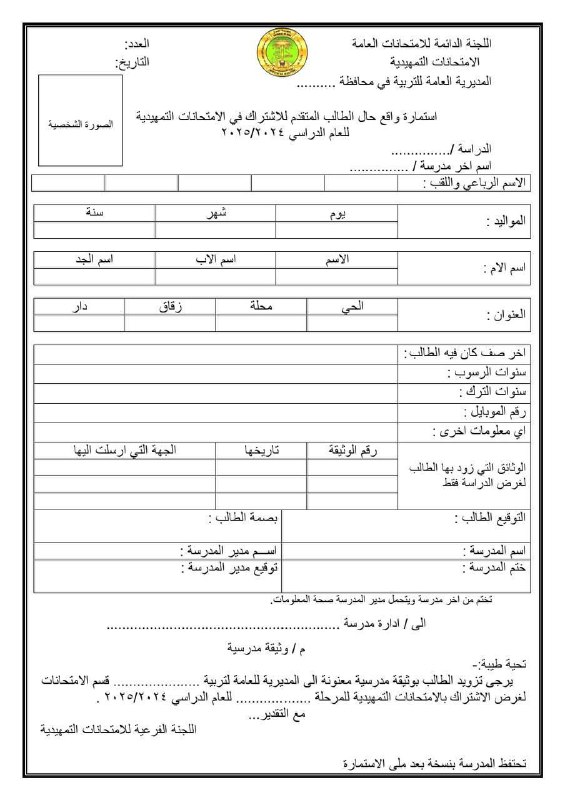 اللجنة الدائمة للامتحانات العامة
العدد:
الامتحانات التمهيدية
التاريخ:
المديرية العامة للتربية في محافظة ..........
الصورة الشخصية
استمارة واقع حال الطالب المتقدم للاشتراك في الامتحانات التمهيدية
للعام الدراسي ٢٠٢٥/٢٠٢٤
الدراسة /...............
اسم اخر مدرسة / ...............
الاسم الرباعي واللقب :
المواليد : يوم شهر سنة
اسم الام : الاسم اسم الاب اسم الجد
العنوان : الحي محلة زقاق دار
اخر صف كان فيه الطالب :
سنوات الرسوب :
سنوات الترك :
رقم الموبايل :
اي معلومات اخرى :
رقم الوثيقة تاريخها الجهة التي ارسلت اليها
الوثائق التي زود بها الطالب
لغرض الدراسة فقط
التوقيع الطالب : بصمة الطالب :
اسم المدرسة : اسم مدير المدرسة :
ختم المدرسة : توقيع مدير المدرسة :
تختم من اخر مدرسة ويتحمل مدير المدرسة صحة المعلومات.
الى / ادارة مدرسة ......................................................
م / وثيقة مدرسية
تحية طيبة:-
يرجى تزويد الطالب بوثيقة مدرسية معنونة الى المديرية للعامة لتربية .................... قسم الامتحانات
لغرض الاشتراك بالامتحانات التمهيدية للمرحلة .................. للعام الدراسي ٢٠٢٥/٢٠٢٤ .
مع التقدير...
اللجنة الفرعية للامتحانات التمهيدية
تحتفظ المدرسة بنسخة بعد ملى الاستمارة